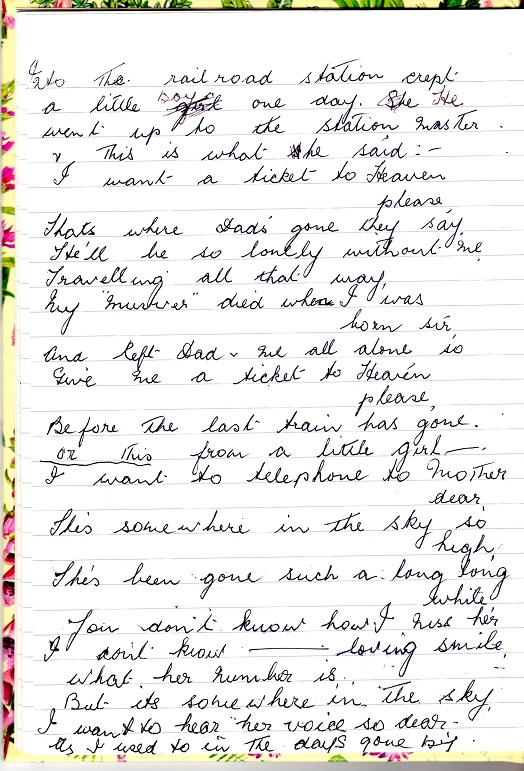 Into The railroad station crept
a little boy one day. He
went up to the station master.
& This is what he said :-
I want a ticket to Heaven
please,
Thats where Dad's gone they say,
He'll be so lonely without me
Travelling all that way,
My "Muvver" died when I was
born sir,
And left Dad & me all alone so
Give me a ticket to Heaven
please,
Before the last train has gone.
or This from a little girl —.
I want to telephone to Mother
dear,
She's somewhere in the sky so
high,
She's been gone such a long long
while
You don't know how I miss her
I don't know ——— loving smile,
what her number is.
But its somewhere in The sky,
I want to hear her voice so dear -
As I used to in The days gone by.